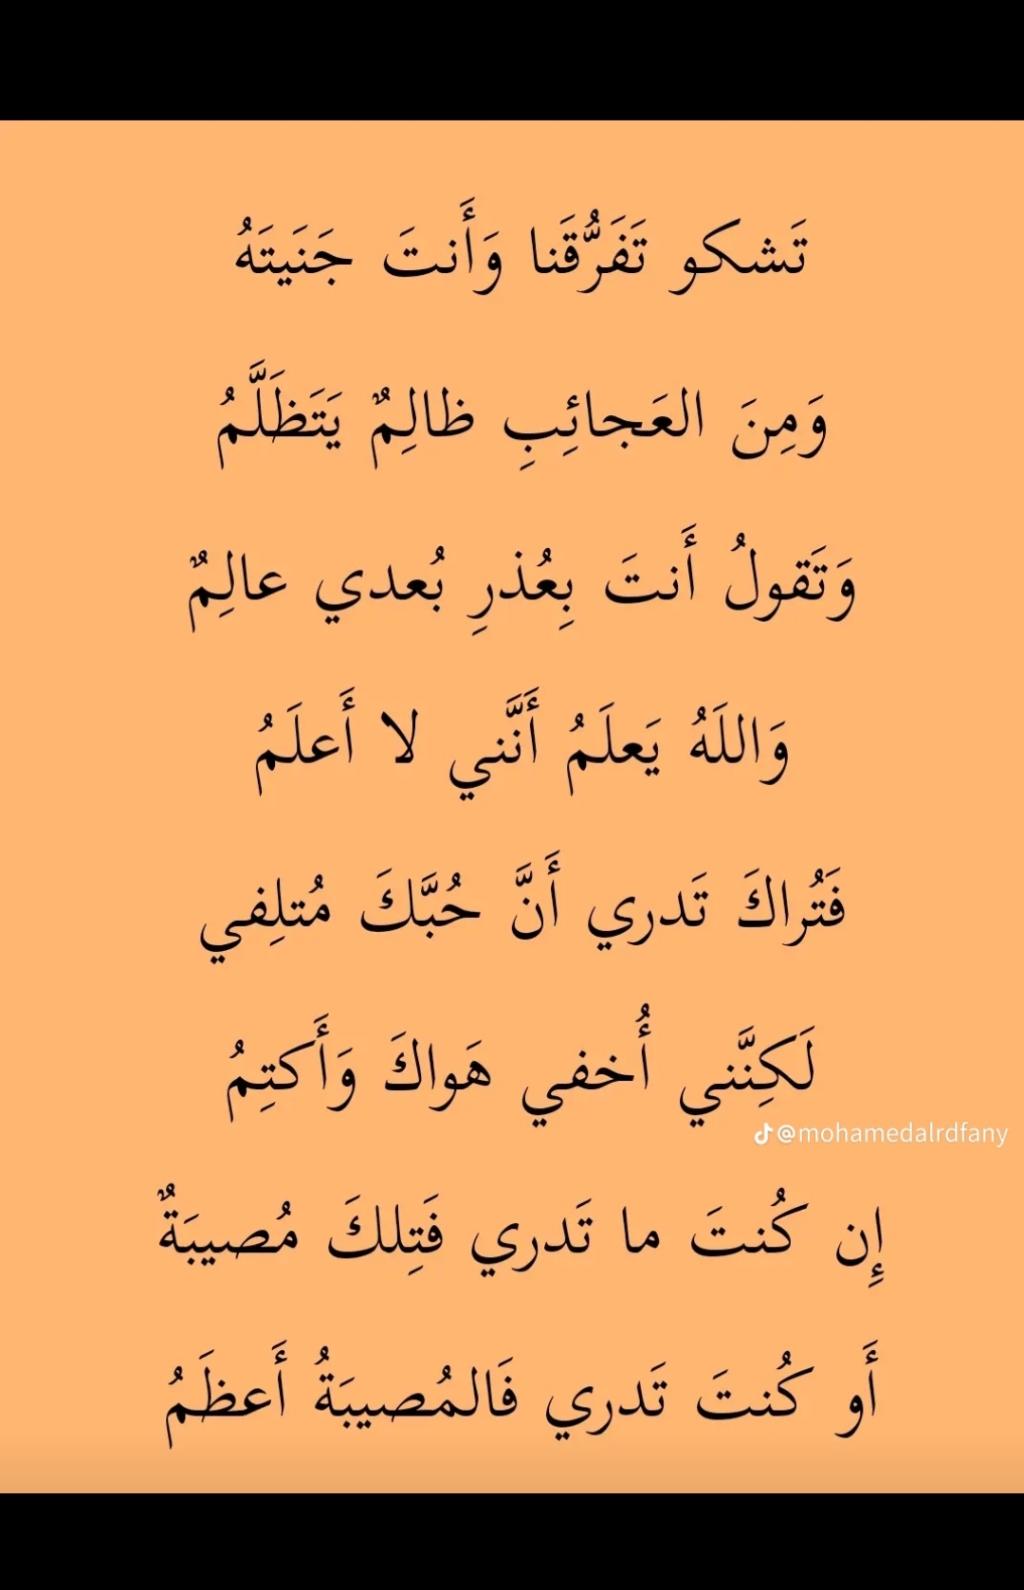 تَشكو تَفَرُّقَنا وَأَنتَ جَنَيتَهُ
وَمِنَ العَجائِبِ ظالِمٌ يَتَظَلَّمُ
وَتَقولُ أَنتَ بِعُذرِ بُعدي عالِمٌ
وَاللَهُ يَعلَمُ أَنَّني لا أَعلَمُ
فَتُراكَ تَدري أَنَّ حُبَّكَ مُتلِفي
لَكِنَّني أُخفي هَواكَ وَأَكتِمُ
@mohamedalrdfany
إِن كُنتَ ما تَدري فَتِلكَ مُصيبَةٌ
أَو كُنتَ تَدري فَالمُصيبَةُ أَعظَمُ